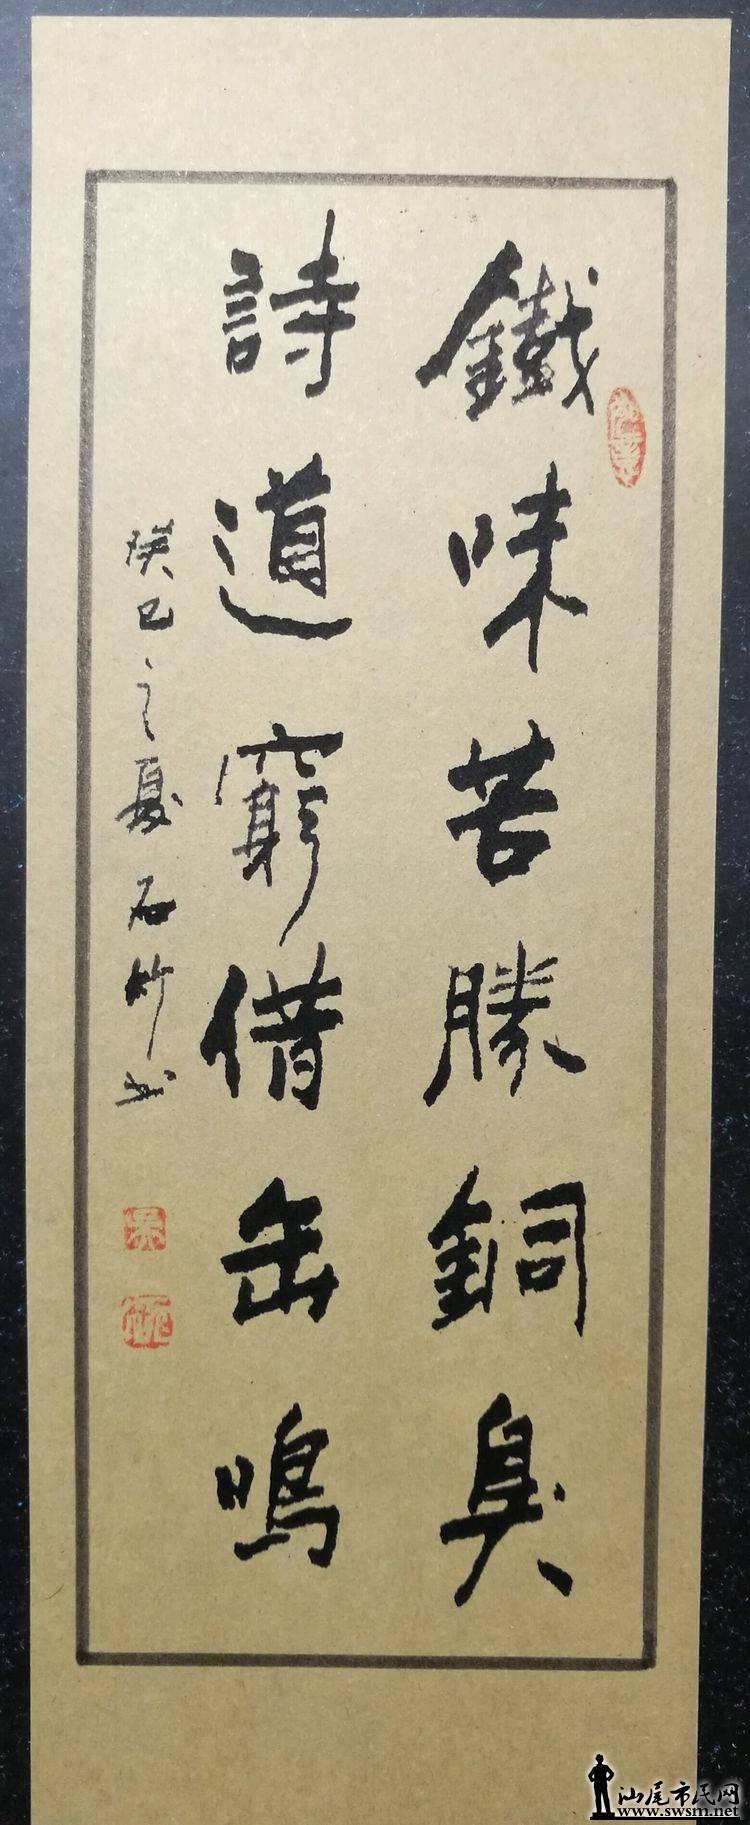 鐵味苦勝銅臭
詩道窮借缶鳴
癸巳之夏石竹书
汕尾市民网
www.swsm.net